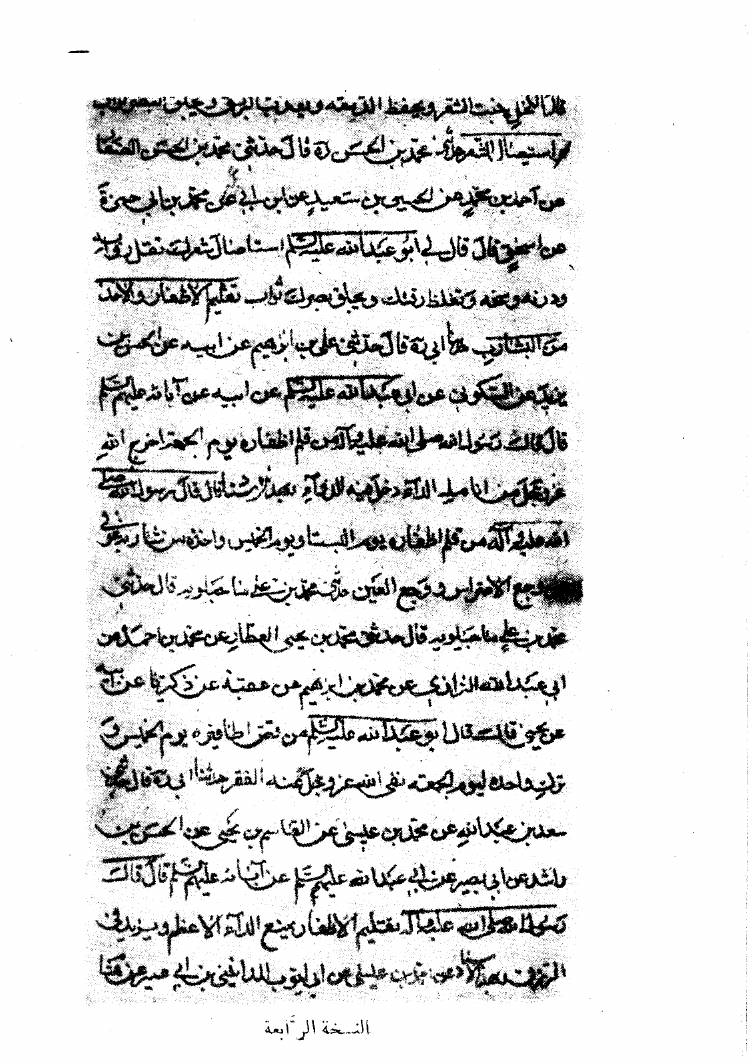 قال الكحل ينبت الشعر ويحفظ الدمعة ويعذب الريق ويجلو البصر ثواب
استيصال الشعر محمد بن الحسن ره قال حدثني محمد بن الحسن الصفار
عن احمد بن محمد عن الحسين بن سعيد عن ابن ابي عمير محمد بن ابي حمزة
عن اسحق قال قال لي ابو عبدالله عليه السلم استاصل شعرك تقل دوابه
ودرنه ووسخه وتغلظ رقبتك ويجلو بصرك ثواب تقليم الاظفار والاخذ
من الشارب ابي ره قال حدثني علي بن ابرهيم عن ابيه عن الحسين بن
يزيد عن السكوني عن ابي عبدالله عليه السلم عن ابيه عن آبائه عليهم السلم
قال قال رسول الله صلى الله عليه وآله من قلم اظفاره يوم الجمعة اخرج الله
عز وجل من انامله الداء وادخل فيه الدواء قال قال رسول الله صلى
الله عليه وآله من قلم اظفاره يوم السبت ويوم الخميس واخذ من شاربه عوفي
وجع الاضراس ووجع العين حدثني محمد بن علي ماجيلويه قال حدثني
محمد بن علي ماجيلويه قال حدثني محمد بن يحيى العطار عن محمد بن احمد عن
ابي عبدالله الرازي عن محمد بن ابرهيم عن عقبة عن ذكريا عن ابيه
عن يحيى قال قال ابو عبدالله عليه السلم من قص اظافيره يوم الخميس و
ترك واحدة ليوم الجمعة نفى الله عز وجل عنه الفقر حدثنا ابي ره قال حدثنا
سعد بن عبدالله عن محمد بن عيسى عن القاسم بن يحيى عن الحسن بن
راشد عن ابي بصير عن ابي عبدالله عليهم السلم عن آبائه عليهم السلم قال قال
رسول الله صلى الله عليه وآله تقليم الاظفار يمنع الداء الاعظم ويزيد في
الرزق وبهذا الاسناد عن محمد بن عيسى عن ابي ايوب المدائني بن ابي عمير عن هشام
النسخة الرّابعة